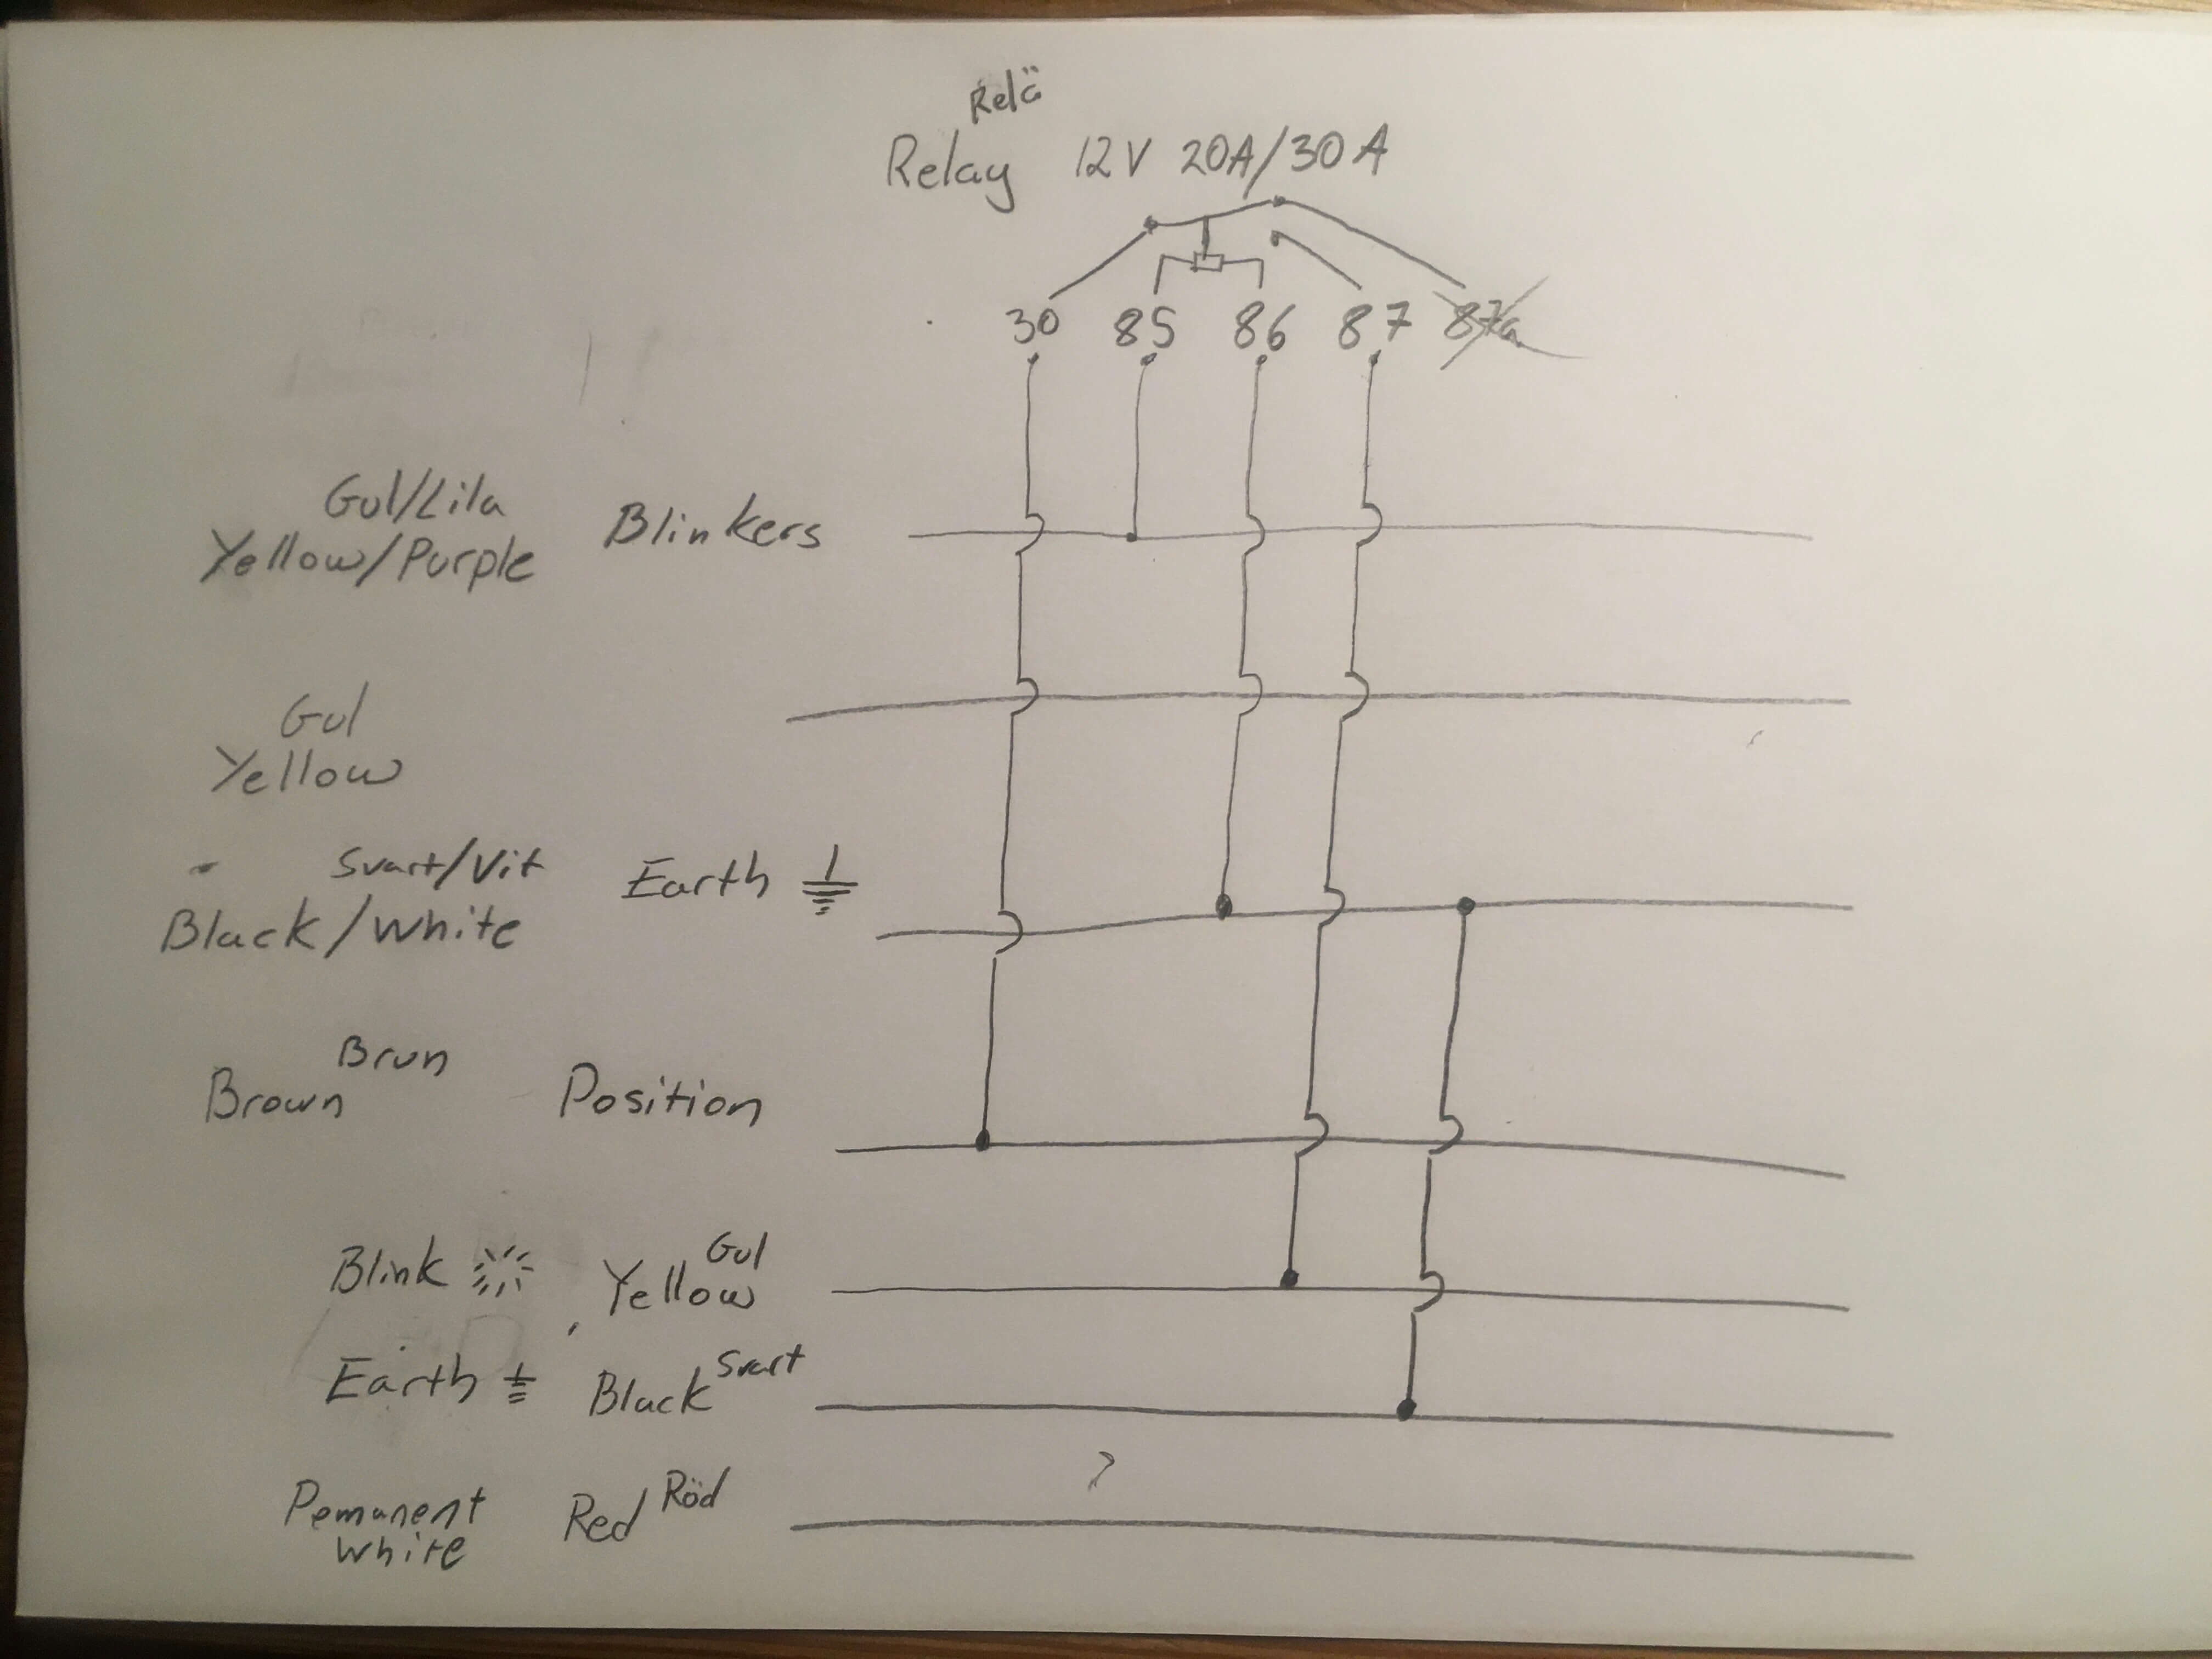 Relä
Relay 12V 20A/30A
30 85 86 87 87a
Gul/Lila
Yellow/Purple Blinkers
Gul
Yellow
Svart/Vit
Black/White Earth
Brun
Brown Position
Blink Yellow Gul
Earth Black Svart
Pemanent
white Red Röd